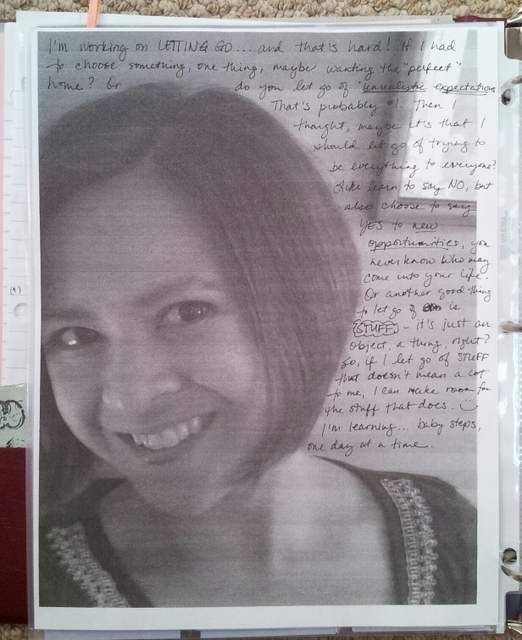 I'm working on LETTING GO... and that's hard! If I had
to choose something, one thing, maybe wanting the "perfect"
home? Or do you let go of "unrealistic expectations
That's probably #1. Then I
thought, maybe it's that I
should let go of trying to
be everything to everyone?
Like learn to say NO, but
also choose to say
YES to new
opportunities, you
never know who may
come into your life.
Or another good thing
to let go of is
STUFF - it's just an
object, a thing, right?
So, if I let go of STUFF
that doesn't mean a lot
to me, I can make room for
the stuff that does. ☺
I'm learning... baby steps,
one day at a time.